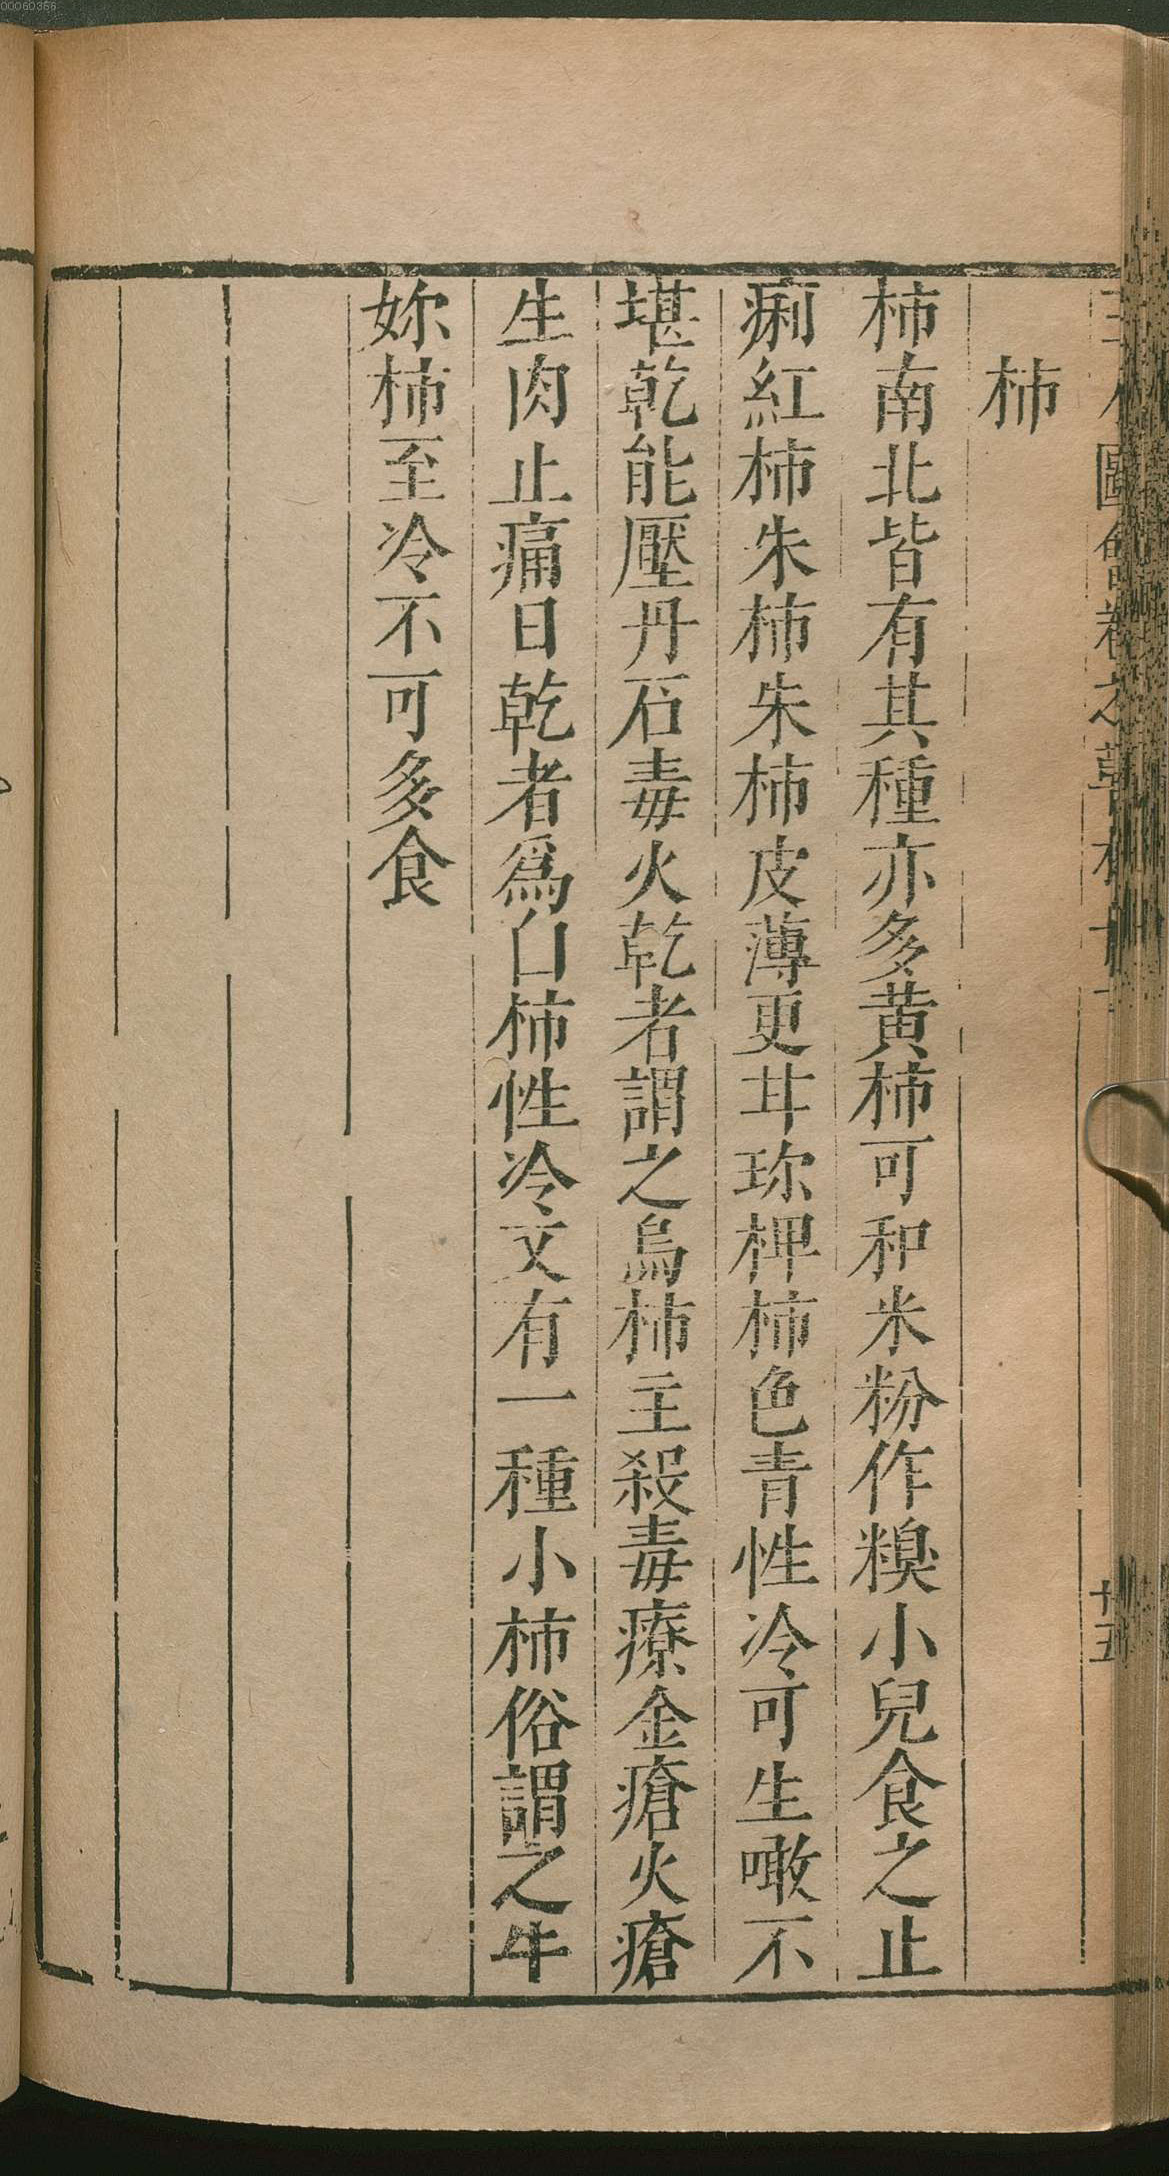 柿
柿南北皆有其種亦多黄柿可和米粉作糗小兒食之止
痢紅柿朱柿朱柿皮薄更甘珎椑柿色青性冷可生噉不
堪乾能壓丹石毒火乾者謂之烏柿主殺毒療金瘡火瘡
生肉止痛日乾者爲白柿性冷文有一種小柿俗謂之牛
妳柿至冷不可多食
十五
00060366